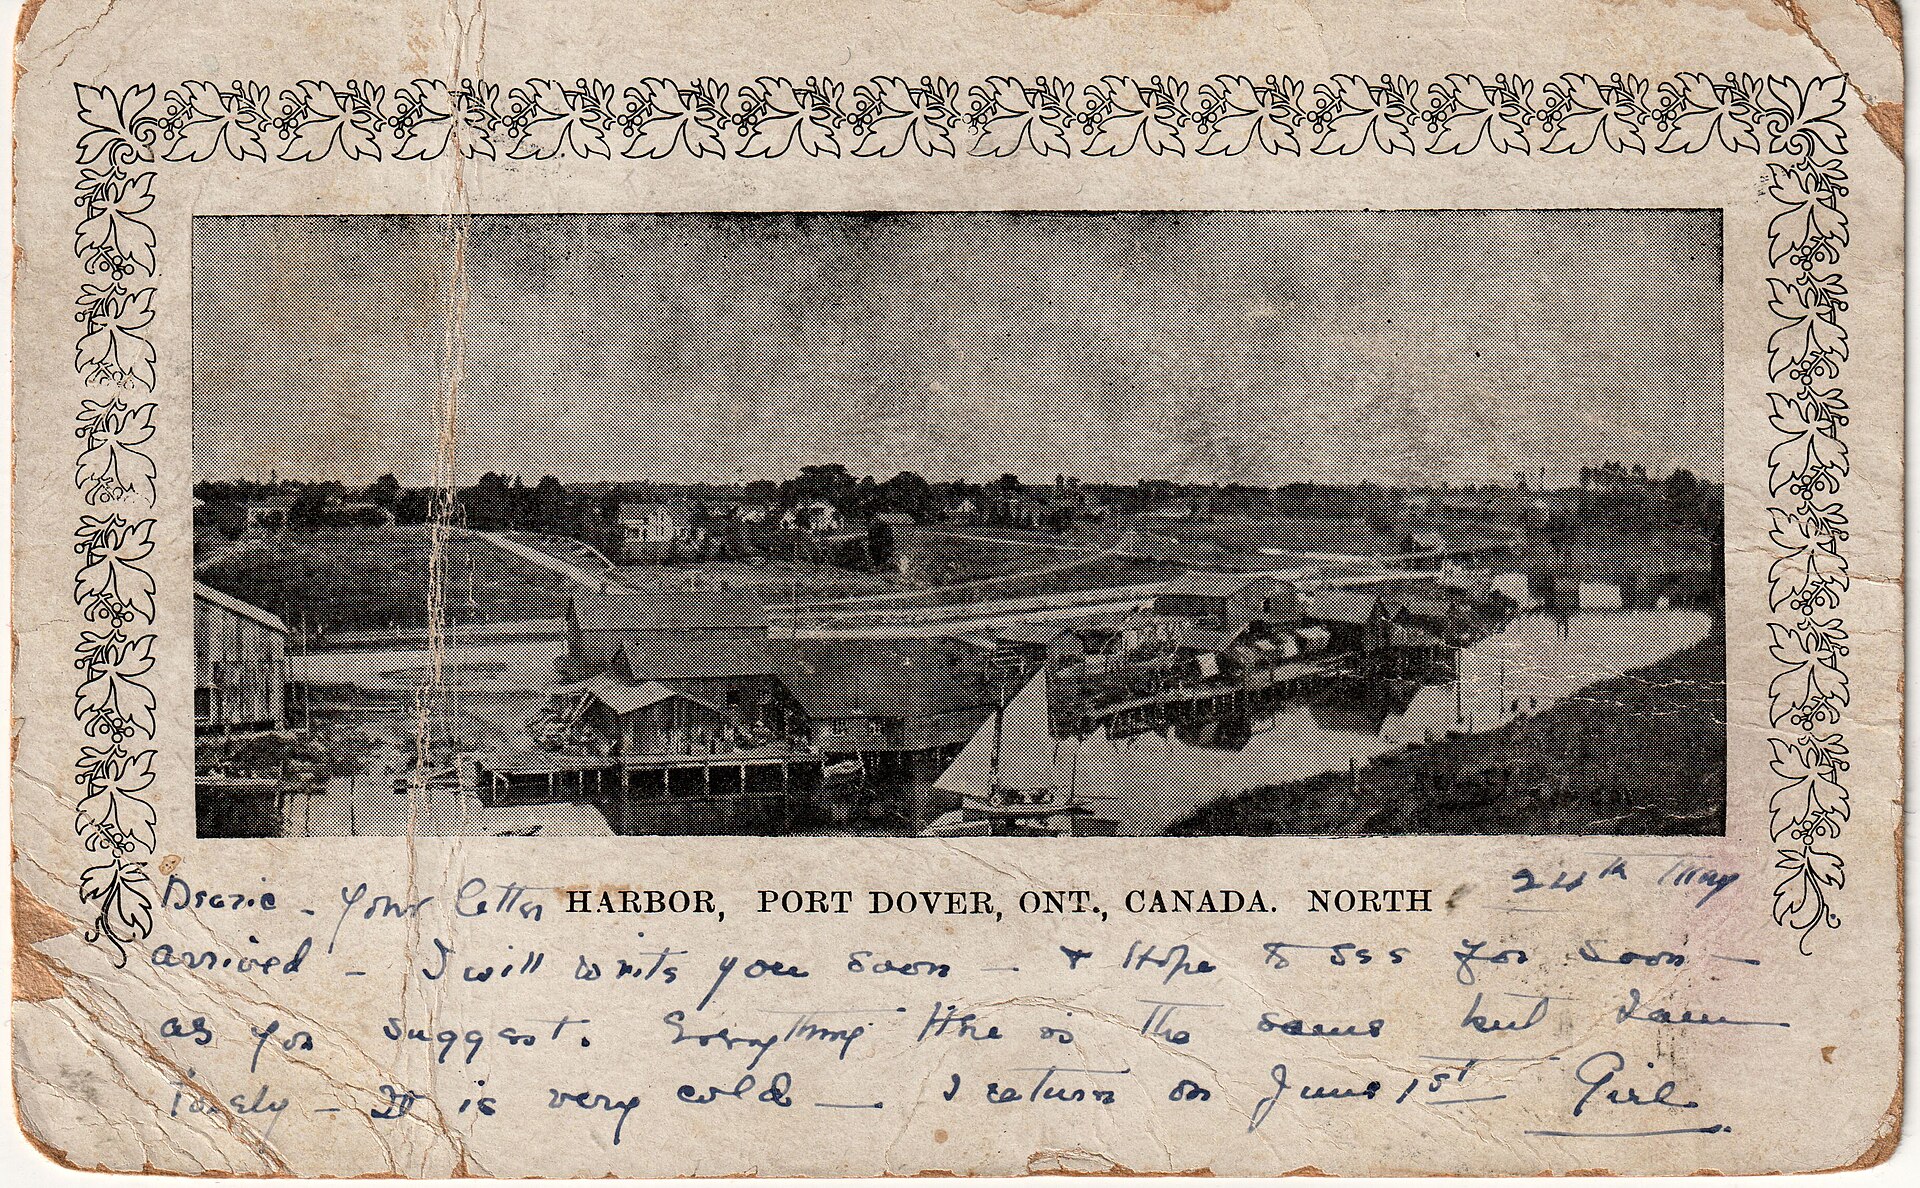 24th May
Dearie - Your letter HARBOR, PORT DOVER, ONT., CANADA. NORTH
arrived - I will write you soon - & Hope to see you soon -
as you suggest. Everything here is the same but I am
lonely - It is very cold - I return on June 1st Girl